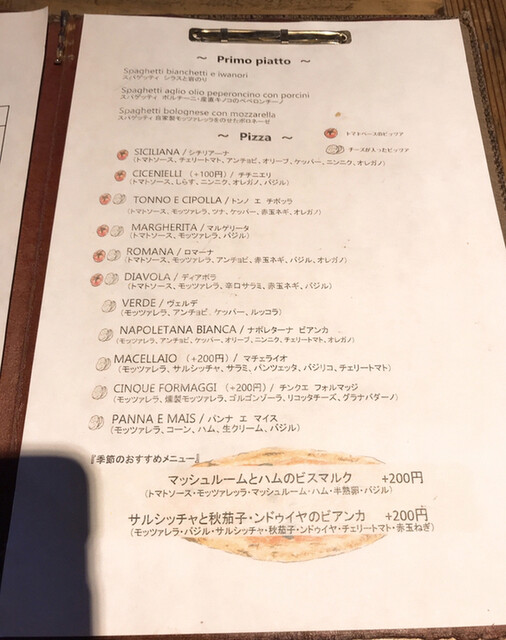 ～ Primo piatto ～
Spaghetti bianchetti e iwanori
スパゲッティ シラスと岩のり
Spaghetti aglio olio peperoncino con porcini
スパゲッティ ポルチーニ・産直キノコのペペロンチーノ
Spaghetti bolognese con mozzarella
スパゲッティ 自家製モッツァレッラをのせたボロネーゼ
～ Pizza ～
トマトベースのピッツァ
チーズが入ったピッツァ
SICILIANA / シチリアーナ
(トマトソース、チェリートマト、アンチョビ、オリーブ、ケッパー、ニンニク、オレガノ)
CICENIELLI (+100円) / チチニエリ
(トマトソース、しらす、ニンニク、オレガノ、バジル)
TONNO E CIPOLLA / トンノ エ チポッラ
(トマトソース、モッツァレラ、ツナ、ケッパー、赤玉ネギ、オレガノ)
MARGHERITA / マルゲリータ
(トマトソース、モッツァレラ、バジル)
ROMANA / ロマーナ
(トマトソース、モッツァレラ、アンチョビ、赤玉ネギ、バジル、オレガノ)
DIAVOLA / ディアボラ
(トマトソース、モッツァレラ、辛口サラミ、赤玉ネギ、バジル)
VERDE / ヴェルデ
(モッツァレラ、アンチョビ、ケッパー、ルッコラ)
NAPOLETANA BIANCA / ナポレターナ ビアンカ
(モッツァレラ、アンチョビ、ケッパー、オリーブ、ニンニク、チェリートマト、オレガノ)
MACELLAIO (+200円) / マチェライオ
(モッツァレラ、サルシッチャ、サラミ、パンツェッタ、バジリコ、チェリートマト)
CINQUE FORMAGGI (+200円) / チンクエ フォルマッジ
(モッツァレラ、燻製モッツァレラ、ゴルゴンゾーラ、リコッタチーズ、グラナパダーノ)
PANNA E MAIS / パンナ エ マイス
(モッツァレラ、コーン、ハム、生クリーム、バジル)
『季節のおすすめメニュー』
マッシュルームとハムのビスマルク +200円
(トマトソース・モッツァレッラ・マッシュルーム・ハム・半熟卵・バジル)
サルシッチャと秋茄子・ンドゥイヤのビアンカ +200円
(モッツァレラ・バジル・サルシッチャ・秋茄子・ンドゥイヤ・チェリートマト・赤玉ねぎ)